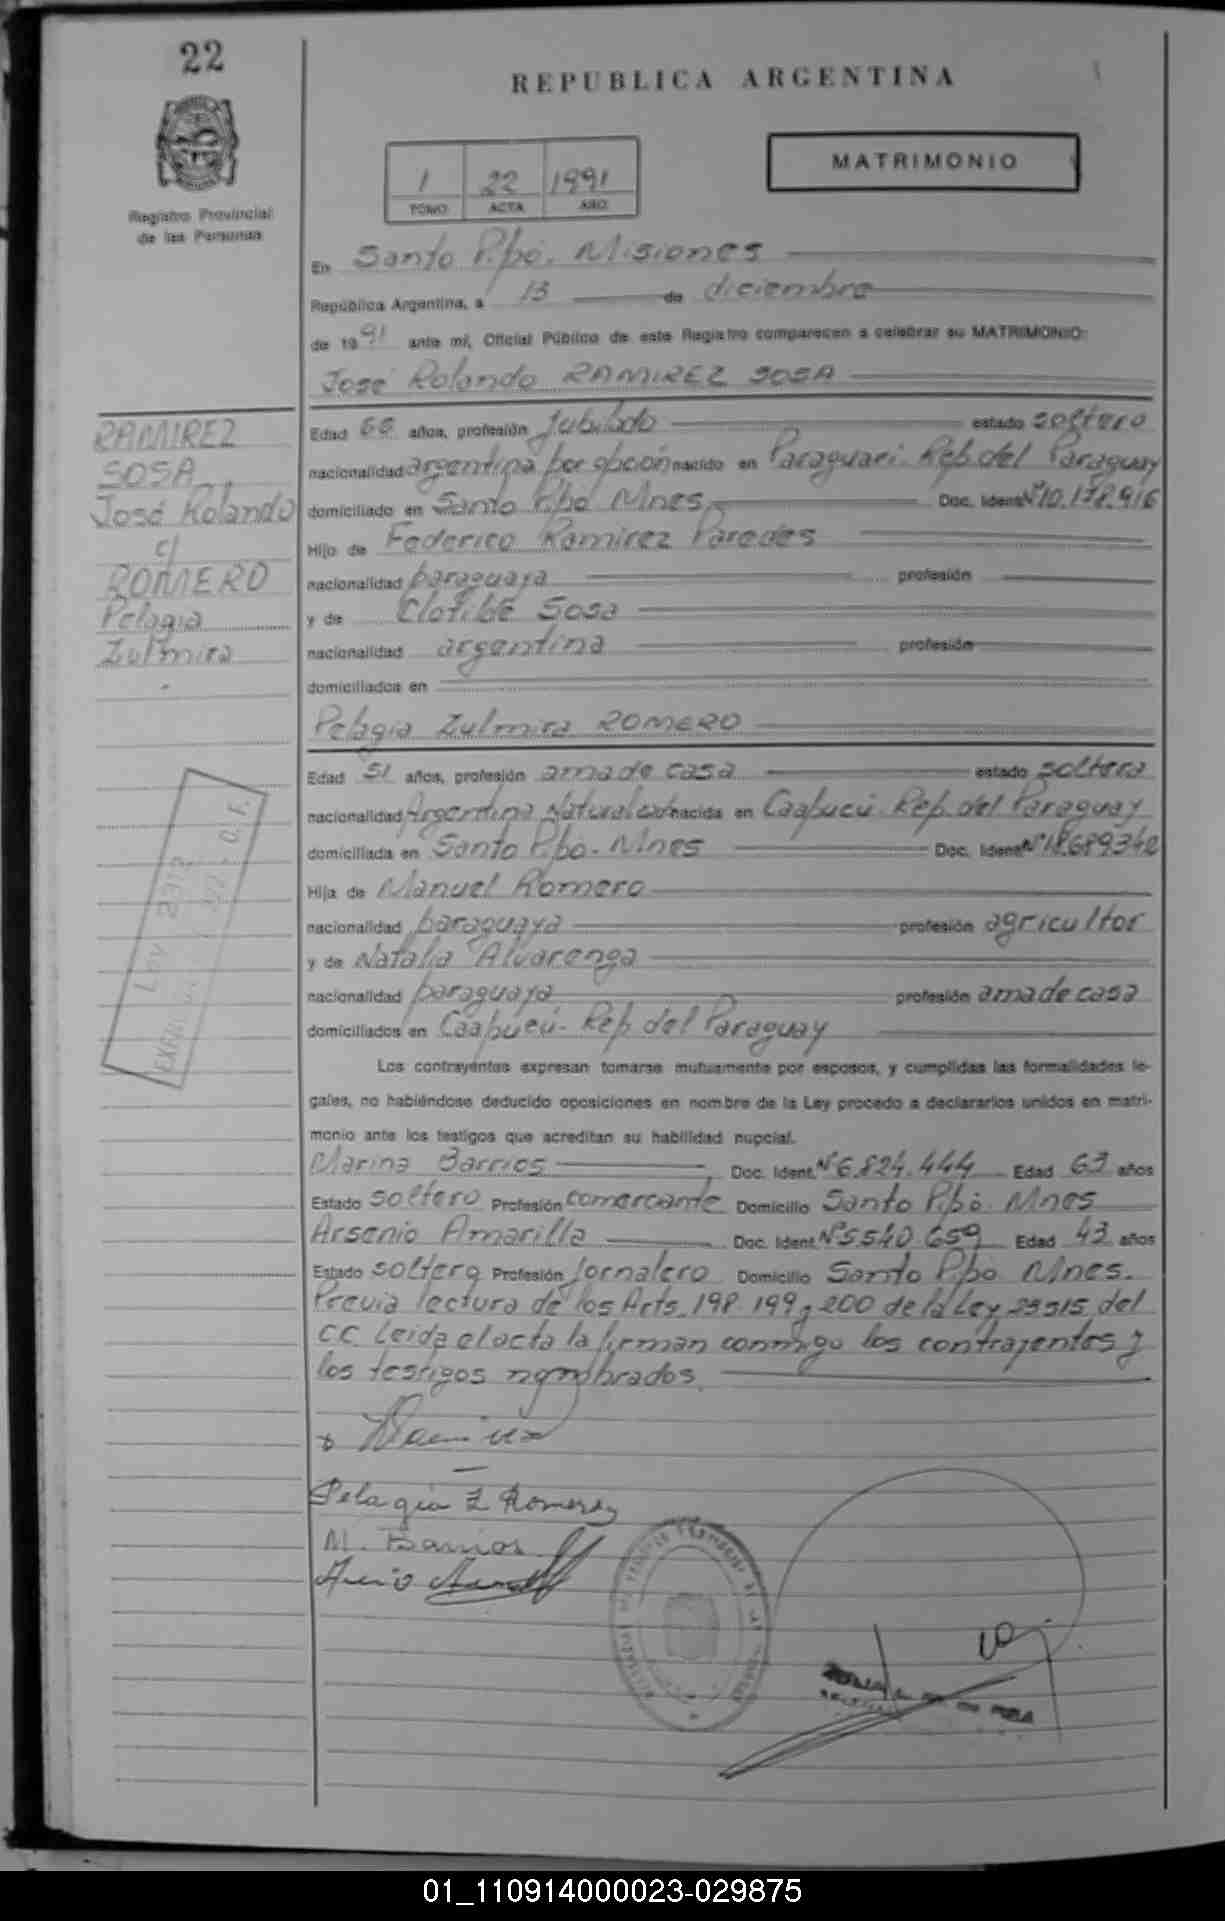 22
REPUBLICA ARGENTINA
Registro Provincial
de las Personas
1 22 1991
TOMO ACTA AÑO
MATRIMONIO
En Santo Pipó. Misiones
República Argentina, a 13 de diciembre
de 1991 ante mí, Oficial Público de este Registro comparecen a celebrar su MATRIMONIO:
José Rolando RAMIREZ SOSA
RAMIREZ
SOSA
José Rolando
c/
ROMERO
Pelagia
Zulmira
Edad 60 años, profesión Jubilado estado soltero
nacionalidad argentina por opción nacido en Paraguari. Rep. del Paraguay
domiciliado en Santo Pipo Mnes. Doc. Ident. Nº 10.178.916
Hijo de Federico Ramirez Paredes
nacionalidad paraguaya profesión
y de Clotilde Sosa
nacionalidad argentina profesión
domiciliados en
Pelagia Zulmira ROMERO
Edad 51 años, profesión ama de casa estado soltera
nacionalidad Argentina Naturalizada nacida en Caapucú. Rep. del Paraguay
domiciliada en Santo Pipo. Mnes Doc. Ident. Nº 18.689.340
Hija de Manuel Romero
nacionalidad paraguaya profesión agricultor
y de Natalia Alvarenga
nacionalidad paraguaya profesión ama de casa
domiciliados en Caapucú- Rep. del Paraguay
Los contrayentes expresan tomarse mutuamente por esposos, y cumplidas las formalidades le-
gales, no habiéndose deducido oposiciones en nombre de la Ley procedo a declararlos unidos en matri-
monio ante los testigos que acreditan su habilidad nupcial.
Marina Barrios Doc. Ident. Nº 6.824.444 Edad 63 años
Estado soltero Profesión comerciante Domicilio Santo Pipó. Mnes
Arsenio Amarilla Doc. Ident. Nº 5.540.659 Edad 43 años
Estado soltero Profesión Jornalero Domicilio Santo Pipo Mnes.
Previa lectura de los Arts. 198. 199 y 200 de la Ley 23515 del
CC. Leida el acta la firman conmigo los contrayentes y
los testigos nombrados.
Pelagia Z Romero
M. Barrios
01_110914000023-029875